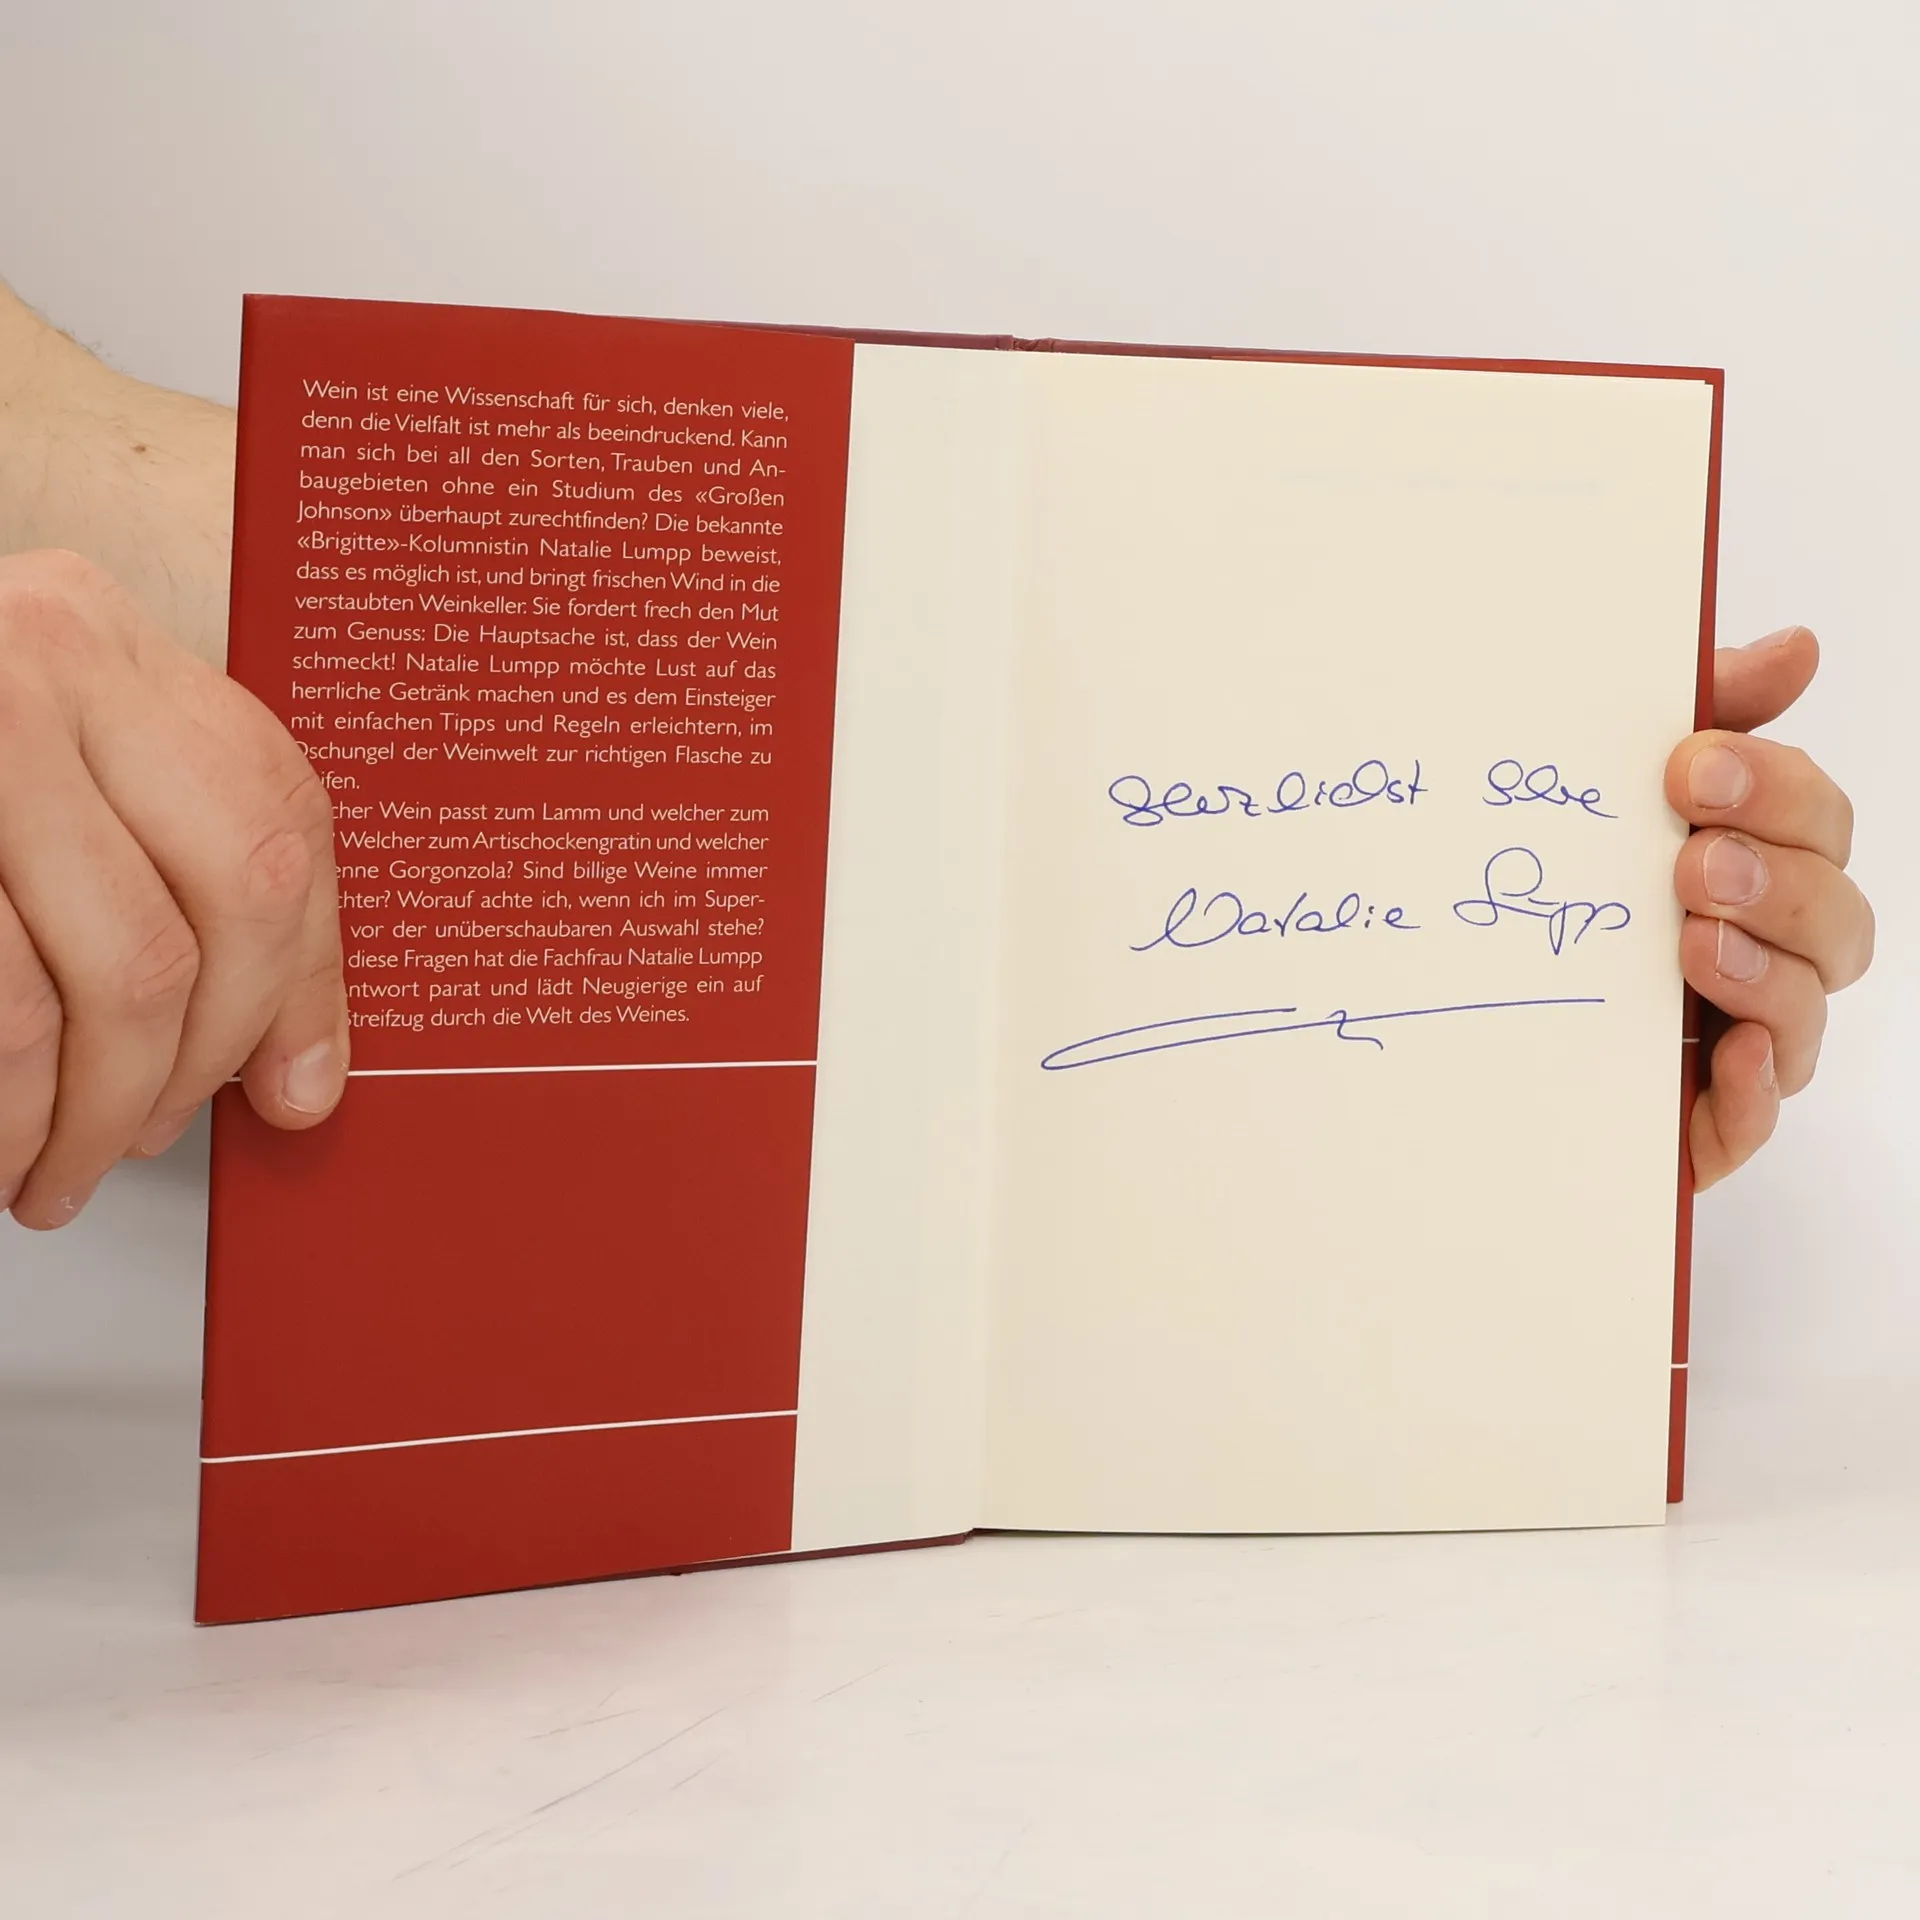 Wein ist eine Wissenschaft für sich, denken viele,
denn die Vielfalt ist mehr als beeindruckend. Kann
man sich bei all den Sorten, Trauben und An-
baugebieten ohne ein Studium des «Großen
Johnson» überhaupt zurechtfinden? Die bekannte
«Brigitte»-Kolumnistin Natalie Lumpp beweist,
dass es möglich ist, und bringt frischen Wind in die
verstaubten Weinkeller. Sie fordert frech den Mut
zum Genuss: Die Hauptsache ist, dass der Wein
schmeckt! Natalie Lumpp möchte Lust auf das
herrliche Getränk machen und es dem Einsteiger
mit einfachen Tipps und Regeln erleichtern, im
Dschungel der Weinwelt zur richtigen Flasche zu
ifen.
cher Wein passt zum Lamm und welcher zum
? Welcher zum Artischockengratin und welcher
enne Gorgonzola? Sind billige Weine immer
chter? Worauf achte ich, wenn ich im Super-
vor der unüberschaubaren Auswahl stehe?
diese Fragen hat die Fachfrau Natalie Lumpp
ntwort parat und lädt Neugierige ein auf
Streifzug durch die Welt des Weines.
Herzlichst Ihre
Natalie Lumpp